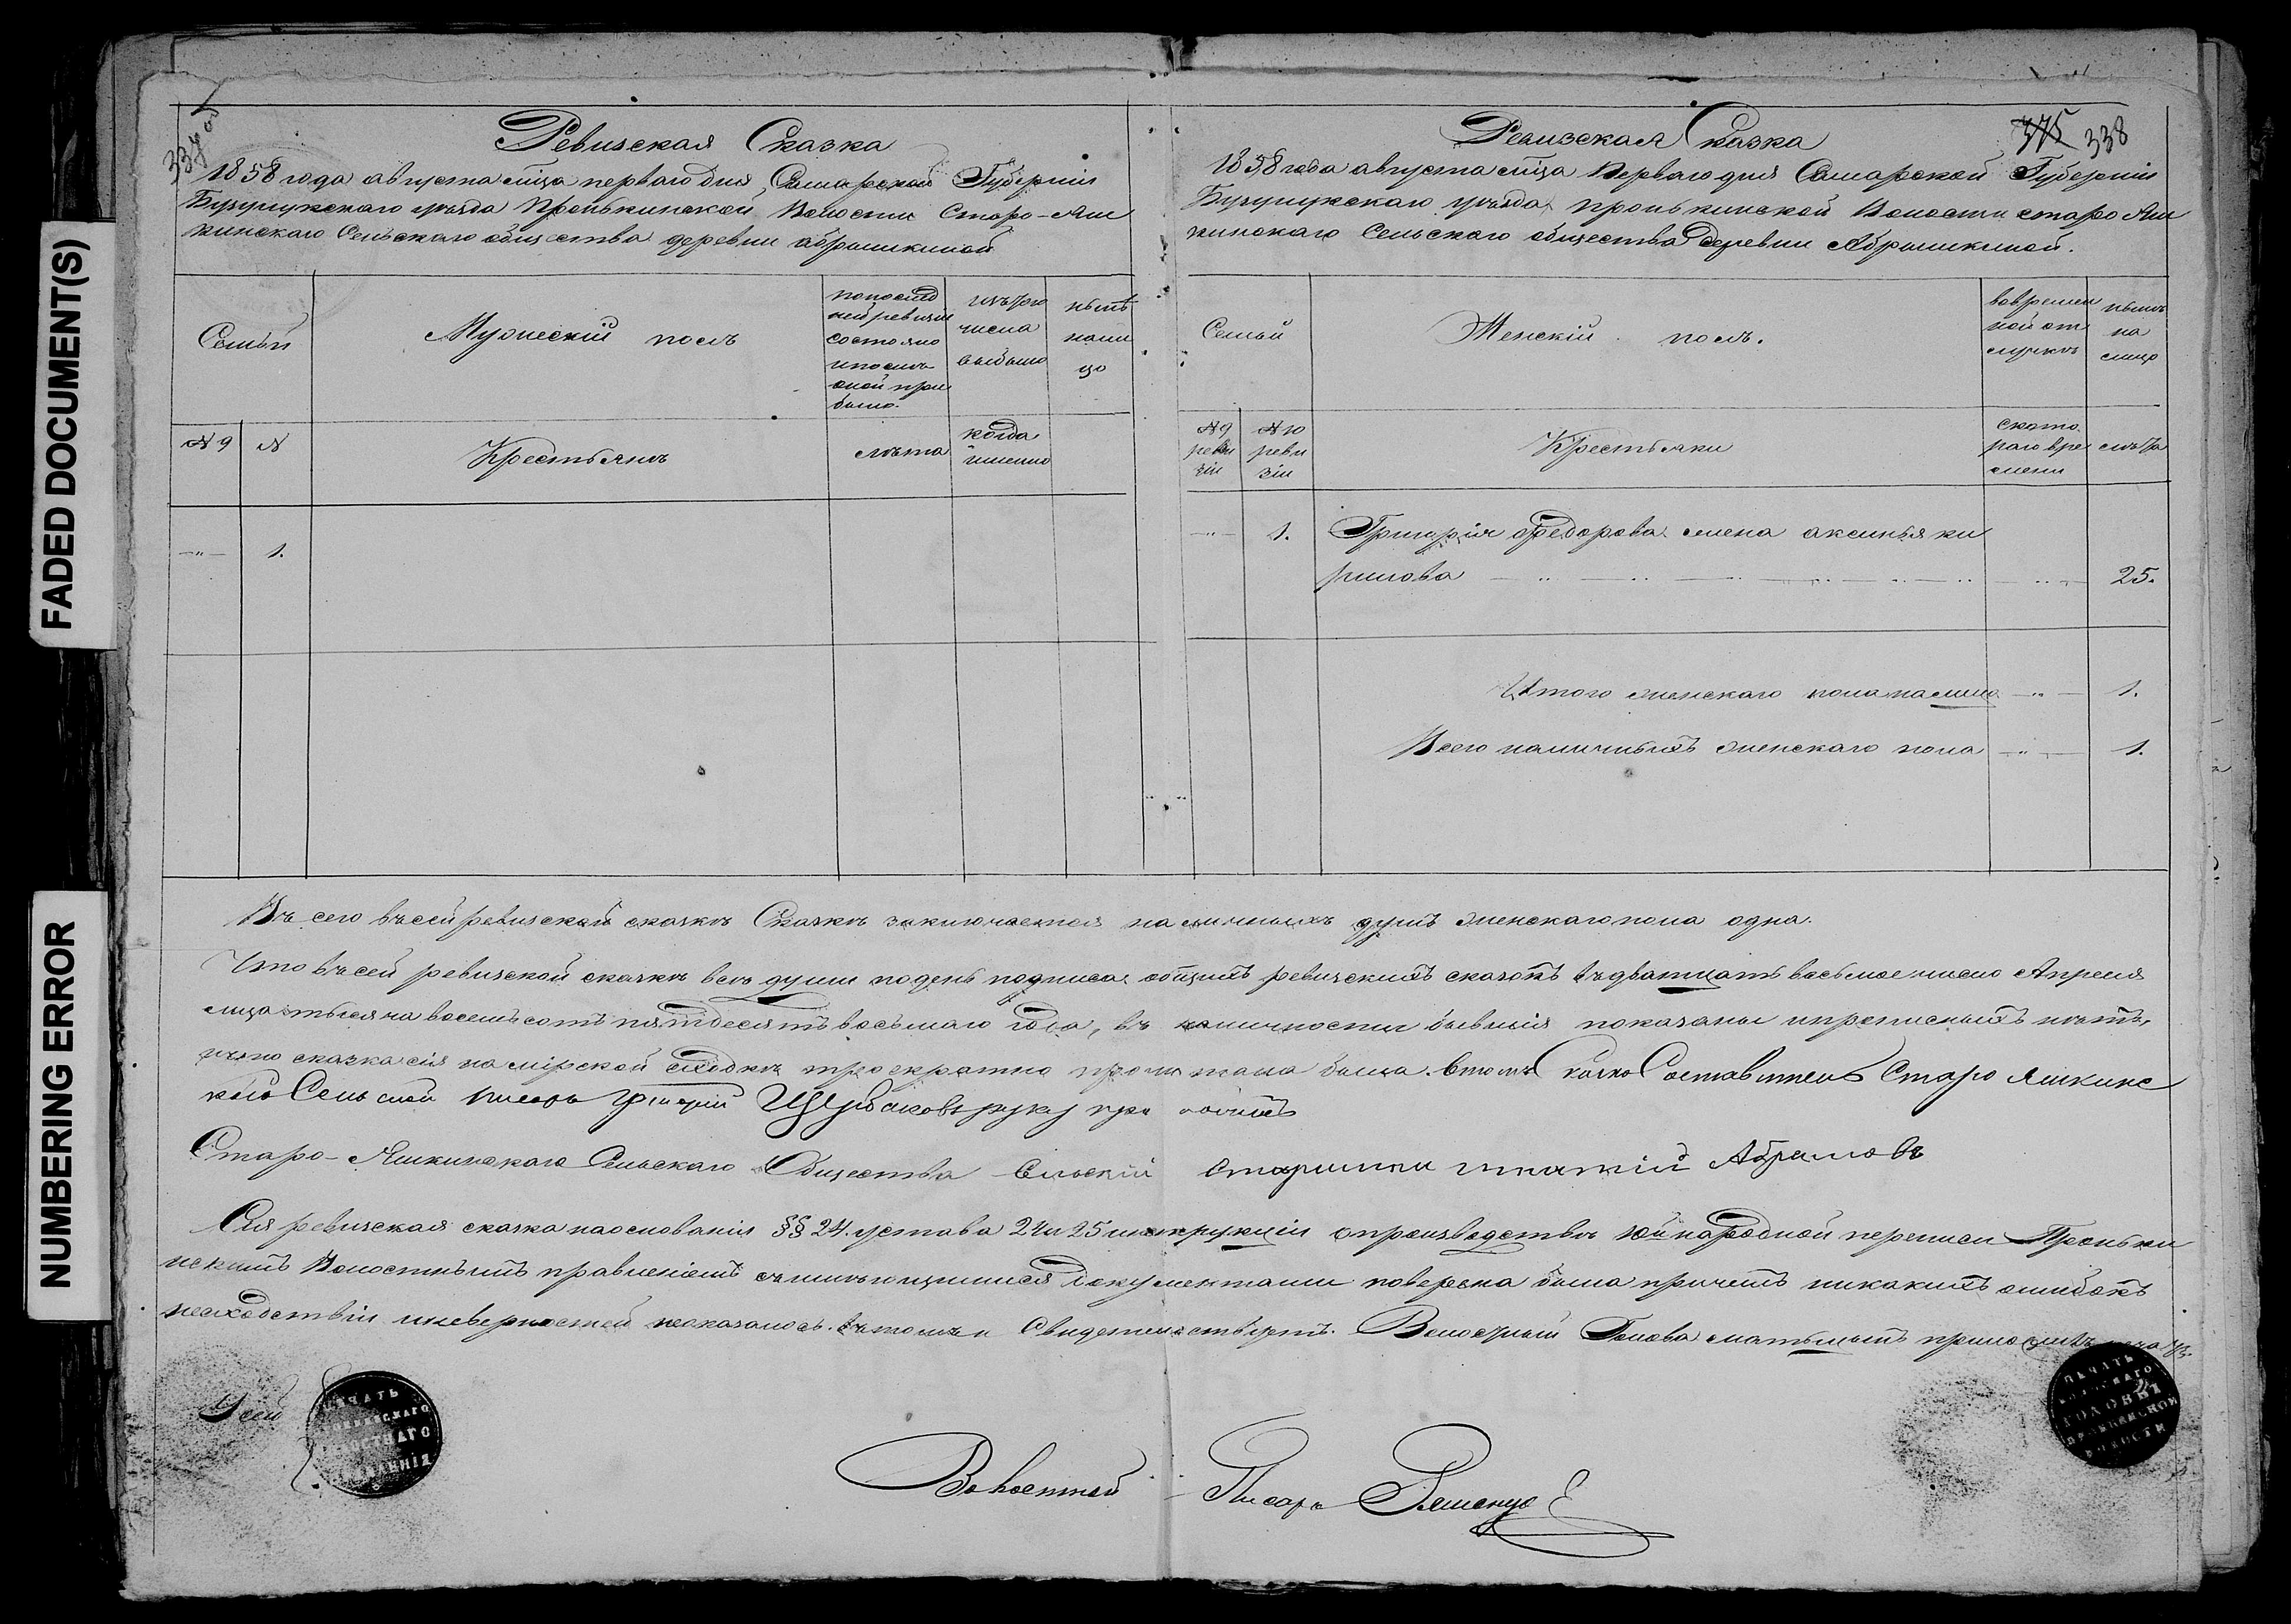 FADED DOCUMENT(S)
NUMBERING ERROR
Ревизская Сказка
1858 года августа мца перваго дня Самарской Губерніи
Бузулукскаго уѣзда Пронькинской Волости Старо-Яш
кинскаго Сельскаго общества деревни абрышкиной
Семьи
Мужескій полъ
по послѣд
ней ревизіи
состояло
и послѣ
оной при
было.
изъ того
числа
выбыло
нынѣ
нали
цо
№ 9
№
Крестьянъ
лѣта
когда
именно
1.
375 338
Ревизская Сказка
1858 года августа мца Перваго дня Самарской Губерніи
Бузулукскаго уѣзда пронькинской Волости старо Яш
кинскаго Сельскаго общества деревни Абрышкиной.
Семьи
Женскій полъ.
во времен
ной от
лучкѣ
нынѣ
на
лицо
№ 9
реви
зіи
№ 10
реви
зіи
Крестьянки
с кото
раго вре
мени
лѣта
1. Григорія Федорова жена аксинья ки
рилова 25.
Итого женскаго пола налицо 1.
Всего наличныхъ женскаго пола 1.
Въ сего въ сей ревизской сказкѣ Сказкѣ заключается наличныхъ душъ женскаго пола одна.
Что въ сей ревизской сказкѣ всѣ души по день подписа общихъ ревизскихъ сказокъ въ дватцать восьмое число Апреля
мца тысяча восемь сотъ пятдесятъ восьмаго года, въ наличности бывшія показаны и прописныхъ нѣтъ,
и что сказка сія на мірской сходкѣ троекратно прочитана была. Въ томъ Составитель Старо яшкинс
кой Сельской писарь Григорій Щербаковъ руку приложилъ
Старо-Яшкинскаго Сельскаго Общества Сельскій старшина Абрамовъ
Сія ревизская сказка на основаніи §§ 24. устава 24 и 25 инструкціи о производствѣ 10й народной переписи Пронькин
скимъ Волостнымъ правленіемъ съ имѣющимися документами поверена была причемъ никакихъ ошибокъ
несходствій и неверностей неоказалось. въ томъ и Свидетельствуетъ. Волосный Голова
Волостной Писарь
ПЕЧАТЬ
ГОЛОВЫ
ВОЛОСТИ